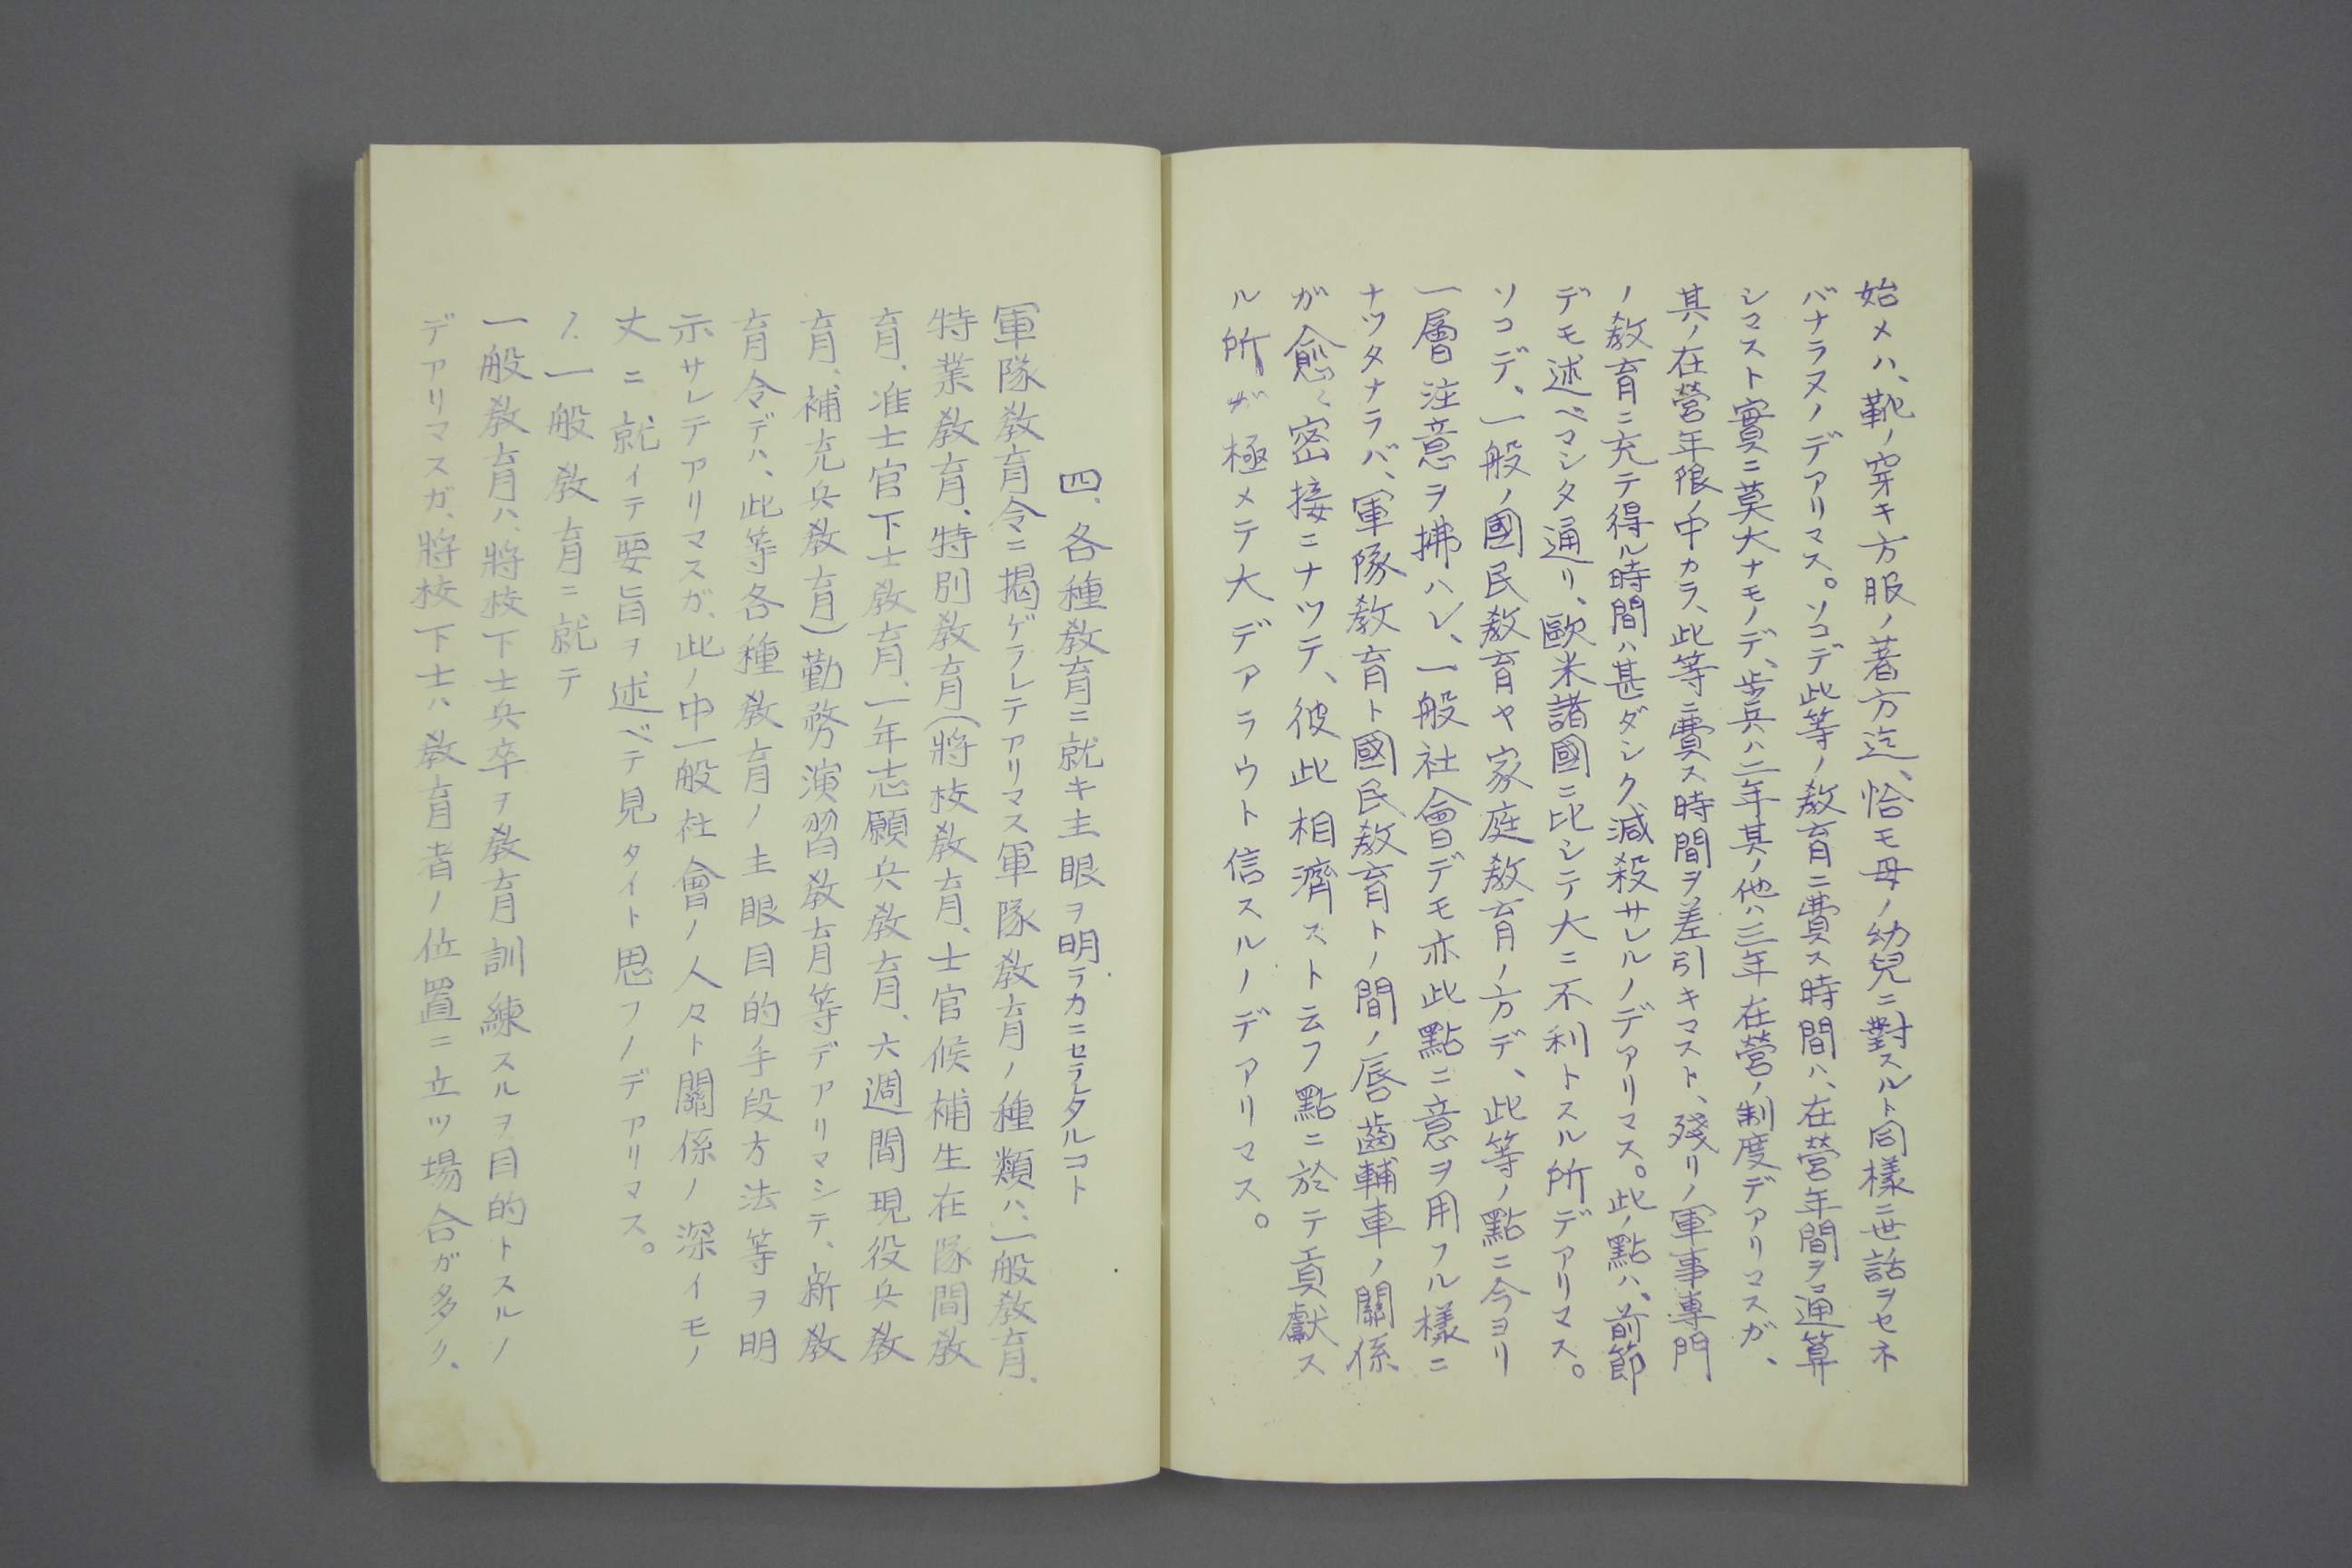 始メハ、靴ノ穿キ方服ノ著方迄、恰モ母ノ幼兒ニ對スルト同樣ニ世話ヲセネ
バナラヌノデアリマス。ソコデ此等ノ敎育ニ費ス時間ハ、在營年間ヲ通算
シマスト實ニ莫大ナモノデ、歩兵ハ二年其ノ他ハ三年在營ノ制度デアリマスガ、
其ノ在營年限ノ中カラ、此等ニ費ス時間ヲ差引キマスト、殘リノ軍事專門
ノ敎育ニ充テ得ル時間ハ甚ダシク減殺サレルノデアリマス。此ノ點ハ、前節
デモ述ベマシタ通リ、歐米諸國ニ比シテ大ニ不利トスル所デアリマス。
ソコデ、一般ノ國民敎育ヤ家庭敎育ノ方デ、此等ノ點ニ今ヨリ
一層注意ヲ拂ハレ、一般社會デモ亦此點ニ意ヲ用フル樣ニ
ナツタナラバ、軍隊敎育ト國民敎育トノ間ノ唇齒輔車ノ關係
ガ愈〻密接ニナツテ、彼此相濟スト云フ點ニ於テ貢獻ス
ル所ガ極メテ大デアラウト信スルノデアリマス。
四、各種敎育ニ就キ主眼ヲ明ラカニセラレタルコト
軍隊敎育令ニ揭ゲラレテアリマス軍隊敎育ノ種類ハ、一般敎育、
特業敎育、特別敎育(將校敎育、士官候補生在隊間敎
育、准士官下士敎育、一年志願兵敎育、六週間現役兵敎
育、補充兵敎育)勤務演習敎育等デアリマシテ、新敎
育令デハ、此等各種敎育ノ主眼目的手段方法等ヲ明
示サレテアリマスガ、此ノ中一般社會ノ人々ト關係ノ深イモノ
丈ニ就イテ要旨ヲ述ベテ見タイト思フノデアリマス。
1.一般敎育ニ就テ
一般敎育ハ、將校下士兵卒ヲ敎育訓練スルヲ目的トスルノ
デアリマスガ、將校下士ハ敎育者ノ位置ニ立ツ場合ガ多ク、